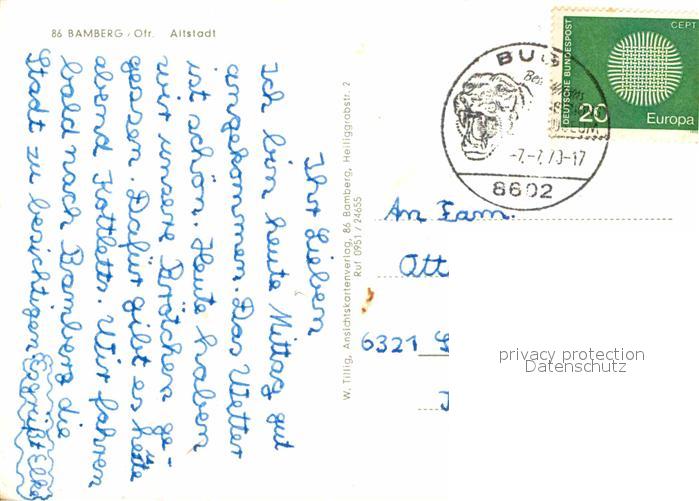 86 BAMBERG / Ofr. Altstadt
Ihr Lieben
Ich bin heute Mittag gut
angekommen. Das Wetter
ist schön. Heute haben
wir unsere Brötchen ge-
gessen. Dafür gibt es heute
abend Kottletts. Wir fahren
bald nach Bamberg die
Stadt zu besichtigen. Es grüßt Elke
W. Tillig, Ansichtskartenverlag, 86 Bamberg, Heiliggrabstr. 2
Ruf 0951 / 24655
BUG
-7.-7.70-17
8602
DEUTSCHE BUNDESPOST
CEPT
20
Europa
An Fam.
Ott
6321
privacy protection
Datenschutz